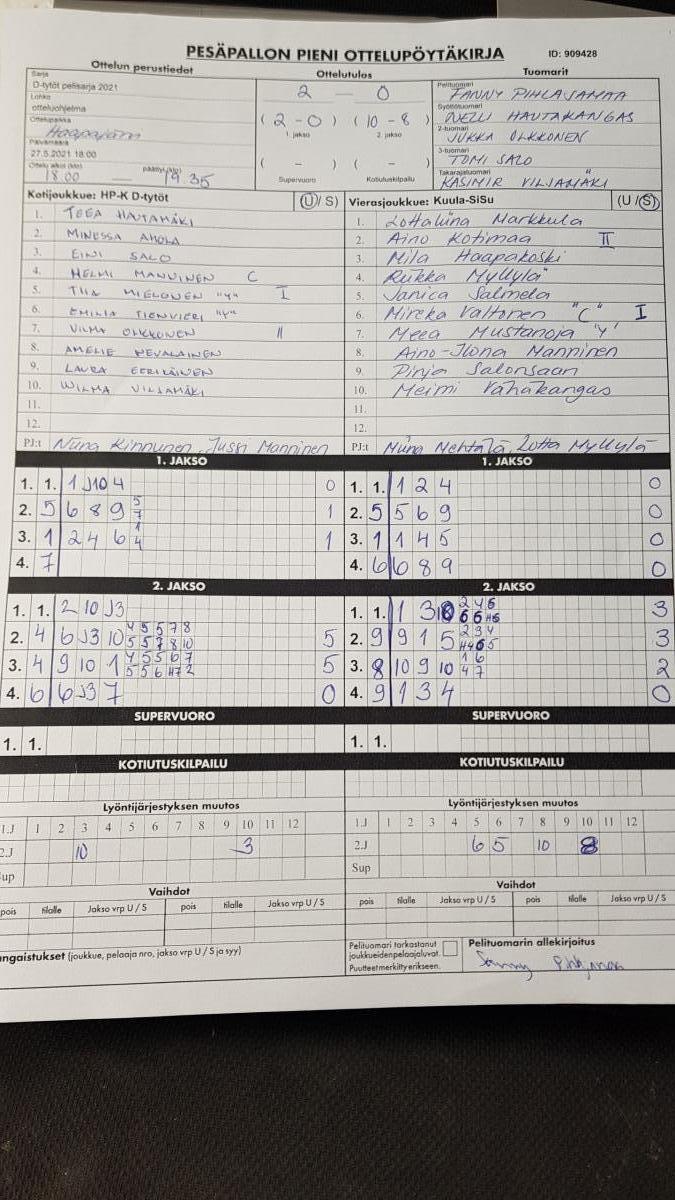 PESÄPALLON PIENI OTTELUPÖYTÄKIRJA ID: 909428
Ottelun perustiedot Ottelutulos Tuomarit
Sarja
D-tytöt pelisarja 2021
Lohko
otteluohjelma
Ottelupaikka
Haapajärvi
Päivämäärä
27.5.2021 18:00
Ottelu alkoi (klo) päättyi (klo)
18.00 — 19.35
2 — 0
(2 - 0) (10 - 8)
1. jakso 2. jakso
( - ) ( - )
Supervuoro Kotiutuskilpailu
Pelituomari
FANNY PIHLAJAMAA
Syöttötuomari
NELLI HAUTAKANGAS
2-tuomari
JUKKA OLKKONEN
3-tuomari
TOMI SALO
Takarajatuomari
KASIMIR VILJAMÄKI
Kotijoukkue: HP-K D-tytöt (U/S)
1. TEEA HAUTAMÄKI
2. MINESSA AHOLA
3. EINI SALO
4. HELMI MANNINEN C
5. TIIA MIELONEN "Y" I
6. EMILIA TIENVIERI "Y"
7. VILMA OLKKONEN II
8. AMELIE HEVALAINEN
9. LAURA EERIKÄINEN
10. WILMA VILJAMÄKI
11.
12.
PJ:t Niina Kinnunen, Jussi Manninen
Vierasjoukkue: Kuula-SiSu (U/S)
1. Lottaliina Markkula
2. Aino Kotimaa II
3. Mila Haapakoski
4. Rukka Myllylä
5. Janica Salmela
6. Mireka Valtonen "C" I
7. Meea Mustanoja "Y"
8. Aino-Ilona Manninen
9. Pinja Salonsaari
10. Meimi Vähäkangas
11.
12.
PJ:t Miina Mehtälä, Lotta Myllylä
1. JAKSO
1. 1. 1 J10 4 0
2. 5 6 8 9 5 7 1
3. 1 2 4 6 1 4 1
4. 7
1. JAKSO
1. 1. 1 2 4 0
2. 5 5 6 9 0
3. 1 1 4 5 0
4. 6 6 8 9 0
2. JAKSO
1. 1. 2 10 J3
2. 4 6 J3 10 4 5 5 7 8 5
5 5 7 8 10
3. 4 9 10 1 4 5 5 6 7 5
5 5 6 H7 2
4. 6 6 J3 7 0
2. JAKSO
1. 1. 1 3 2 4 6 3
6 6 H5
2. 9 9 1 5 2 3 4 3
3. 8 10 9 10 1 6 2
4 7
4. 9 1 3 4 0
SUPERVUORO
1. 1.
SUPERVUORO
1. 1.
KOTIUTUSKILPAILU
KOTIUTUSKILPAILU
Lyöntijärjestyksen muutos
1.J 1 2 3 4 5 6 7 8 9 10 11 12
2.J 10 3
Sup
Lyöntijärjestyksen muutos
1.J 1 2 3 4 5 6 7 8 9 10 11 12
2.J 6 5 10 8
Sup
Vaihdot
pois tilalle Jakso vrp U / S pois tilalle Jakso vrp U / S
Vaihdot
pois tilalle Jakso vrp U / S pois tilalle Jakso vrp U / S
ngaistukset (joukkue, pelaaja nro, jakso vrp U / S ja syy)
Pelituomari tarkastanut
joukkueidenpelaajaluvat.
Puutteet merkitty erikseen.
Pelituomarin allekirjoitus